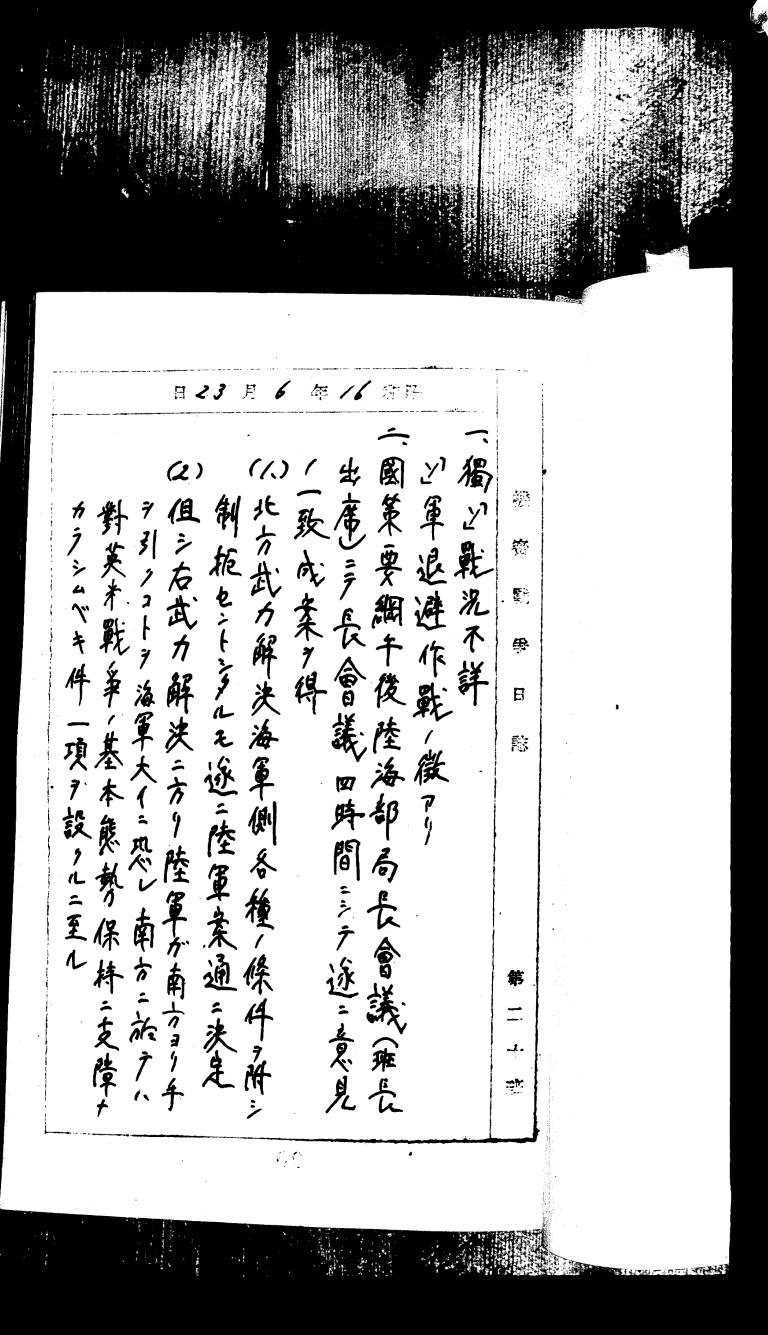 機密戰爭日誌 第二十班
昭和16年6月23日
一、獨「ソ」戰況不詳
「ソ」軍退避作戰ノ徴アリ
二、國策要綱午後陸海部局長會議（班長
出席）ニテ長會議四時間ニシテ遂ニ意見
ノ一致成案ヲ得
(1.)北方武力解決海軍側各種ノ條件ヲ附シ
制扼セントシタルモ遂ニ陸軍案通ニ決定
(2)但シ右武力解決ニ方リ陸軍ガ南方ヨリ手
ヲ引クコトヲ海軍大イニ恐レ南方ニ於テハ
對英米戰爭ノ基本態勢ノ保持ニ支障ナ
カラシムベキ件一項ヲ設クルニ至ル